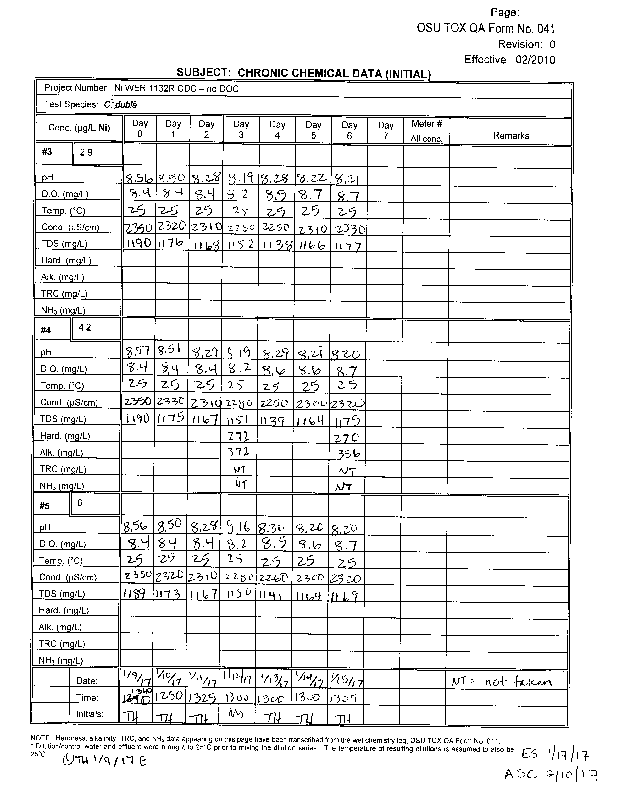 Page:
OSU TOX QA Form No. 041
Revision: 0
Effective 02/2010
SUBJECT: CHRONIC CHEMICAL DATA (INITIAL)
Project Number Ni WER 1132R CDC – no DOC
Test Species: C. dubia
Conc. (µg/L Ni) Day 0 Day 1 Day 2 Day 3 Day 4 Day 5 Day 6 Day 7 Meter # All conc. Remarks
#3
pH 8.56 8.50 8.28 8.19 8.28 8.22 8.21
D.O. (mg/L) 8.4 8.4 8.4 8.2 8.5 8.7 8.7
Temp. (°C) 25 25 25 25 25 25 25
Cond. (µS/cm) 2350 2320 2310 2250 2310 2330
TDS (mg/L) 1190 1176 1168 1152 1138 1166 1177
Hard. (mg/L)
Alk. (mg/L)
TRC (mg/L)
NH₃ (mg/L)
#4
pH 8.57 8.51 8.29 8.19 8.29 8.21 8.20
D.O. (mg/L) 8.4 8.4 8.4 8.2 8.6 8.6 8.7
Temp. (°C) 25 25 25 25 25 25 25
Cond. (µS/cm) 2350 2330 2310 2280 2250 2300 2320
TDS (mg/L) 1190 1175 1167 1151 1139 1164 1175
Hard. (mg/L) 272 270
Alk. (mg/L) 372 356
TRC (mg/L) NT NT
NH₃ (mg/L) NT NT
#5 6
pH 8.56 8.50 8.28 8.16 8.30 8.20 8.20
D.O. (mg/L) 8.4 8.4 8.4 8.2 8.5 8.6 8.7
Temp. (°C) 25 25 25 25 25 25 25
Cond. (µS/cm) 2350 2320 2310 2280 2260 2300 2300
TDS (mg/L) 1189 1173 1167 1150 1141 1164 1169
Hard. (mg/L)
Alk. (mg/L)
TRC (mg/L)
NH₃ (mg/L)
Date: 1/9/17 1/10/17 1/11/17 1/12/17 1/13/17 1/14/17 1/15/17 NT = not taken
Time: 1340 1250 1325 1300 1300 1300 1305
Initials: TH TH TH TH TH TH
NOTE: Hardness, alkalinity, TRC, and NH₃ data appearing on this page have been transcribed from the wet chemistry log, OSU TOX QA Form No.
* Dilution/control water and effluent were brought to 25°C prior to mixing the dilution series. The temperature of resulting dilutions is assumed to also be
25°C.
TH 1/9/17 E
ES 1/17/17
ADC 2/10/17